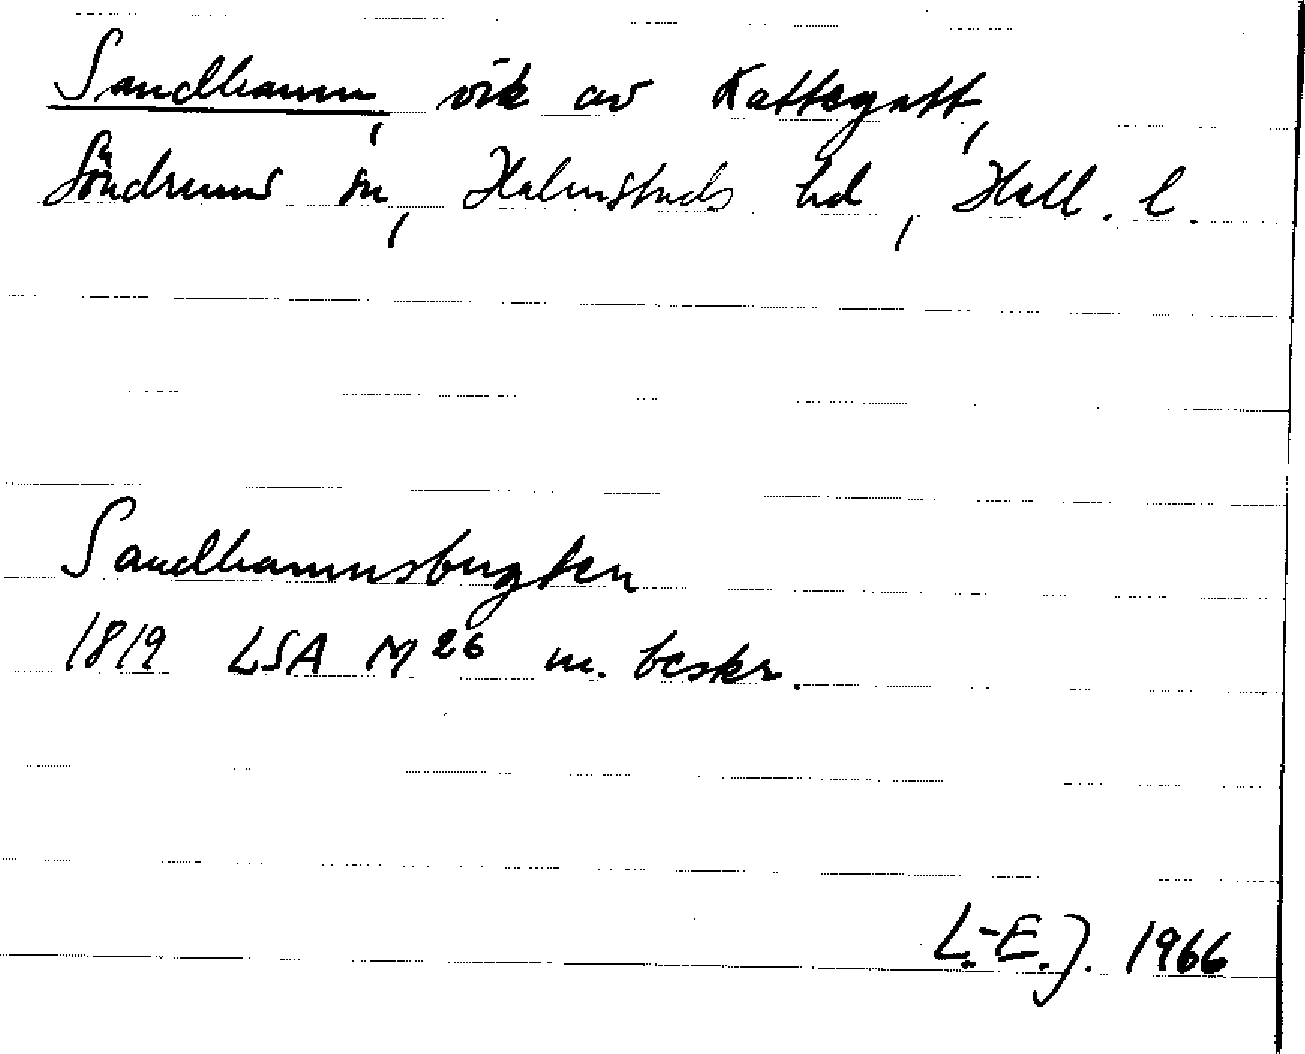 Sandhamn, vik av Kattegatt,
Söndrums sn, Halmstads hd, Hall. l.
Sandhamnsbugten
1819 LSA M 26 m. beskr.
L.-E.J. 1966